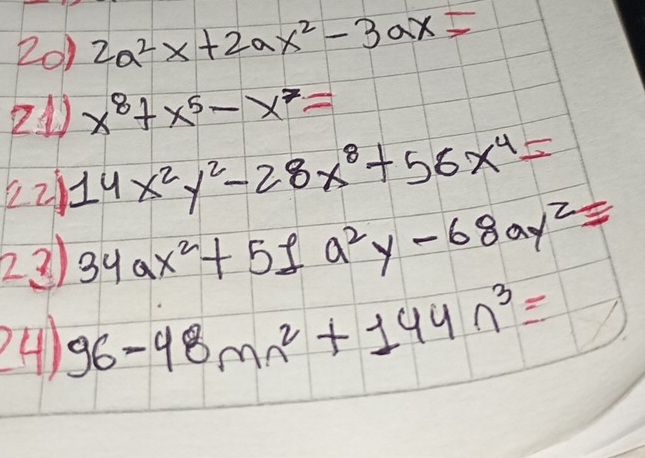 20) 2a²x+2ax²-3ax=
21) x⁸+x⁵-x⁷=
22) 14x²y²-28x⁸+56x⁴=
23) 34ax²+51a²y-68ay²=
24) 96-48mn²+144n³=